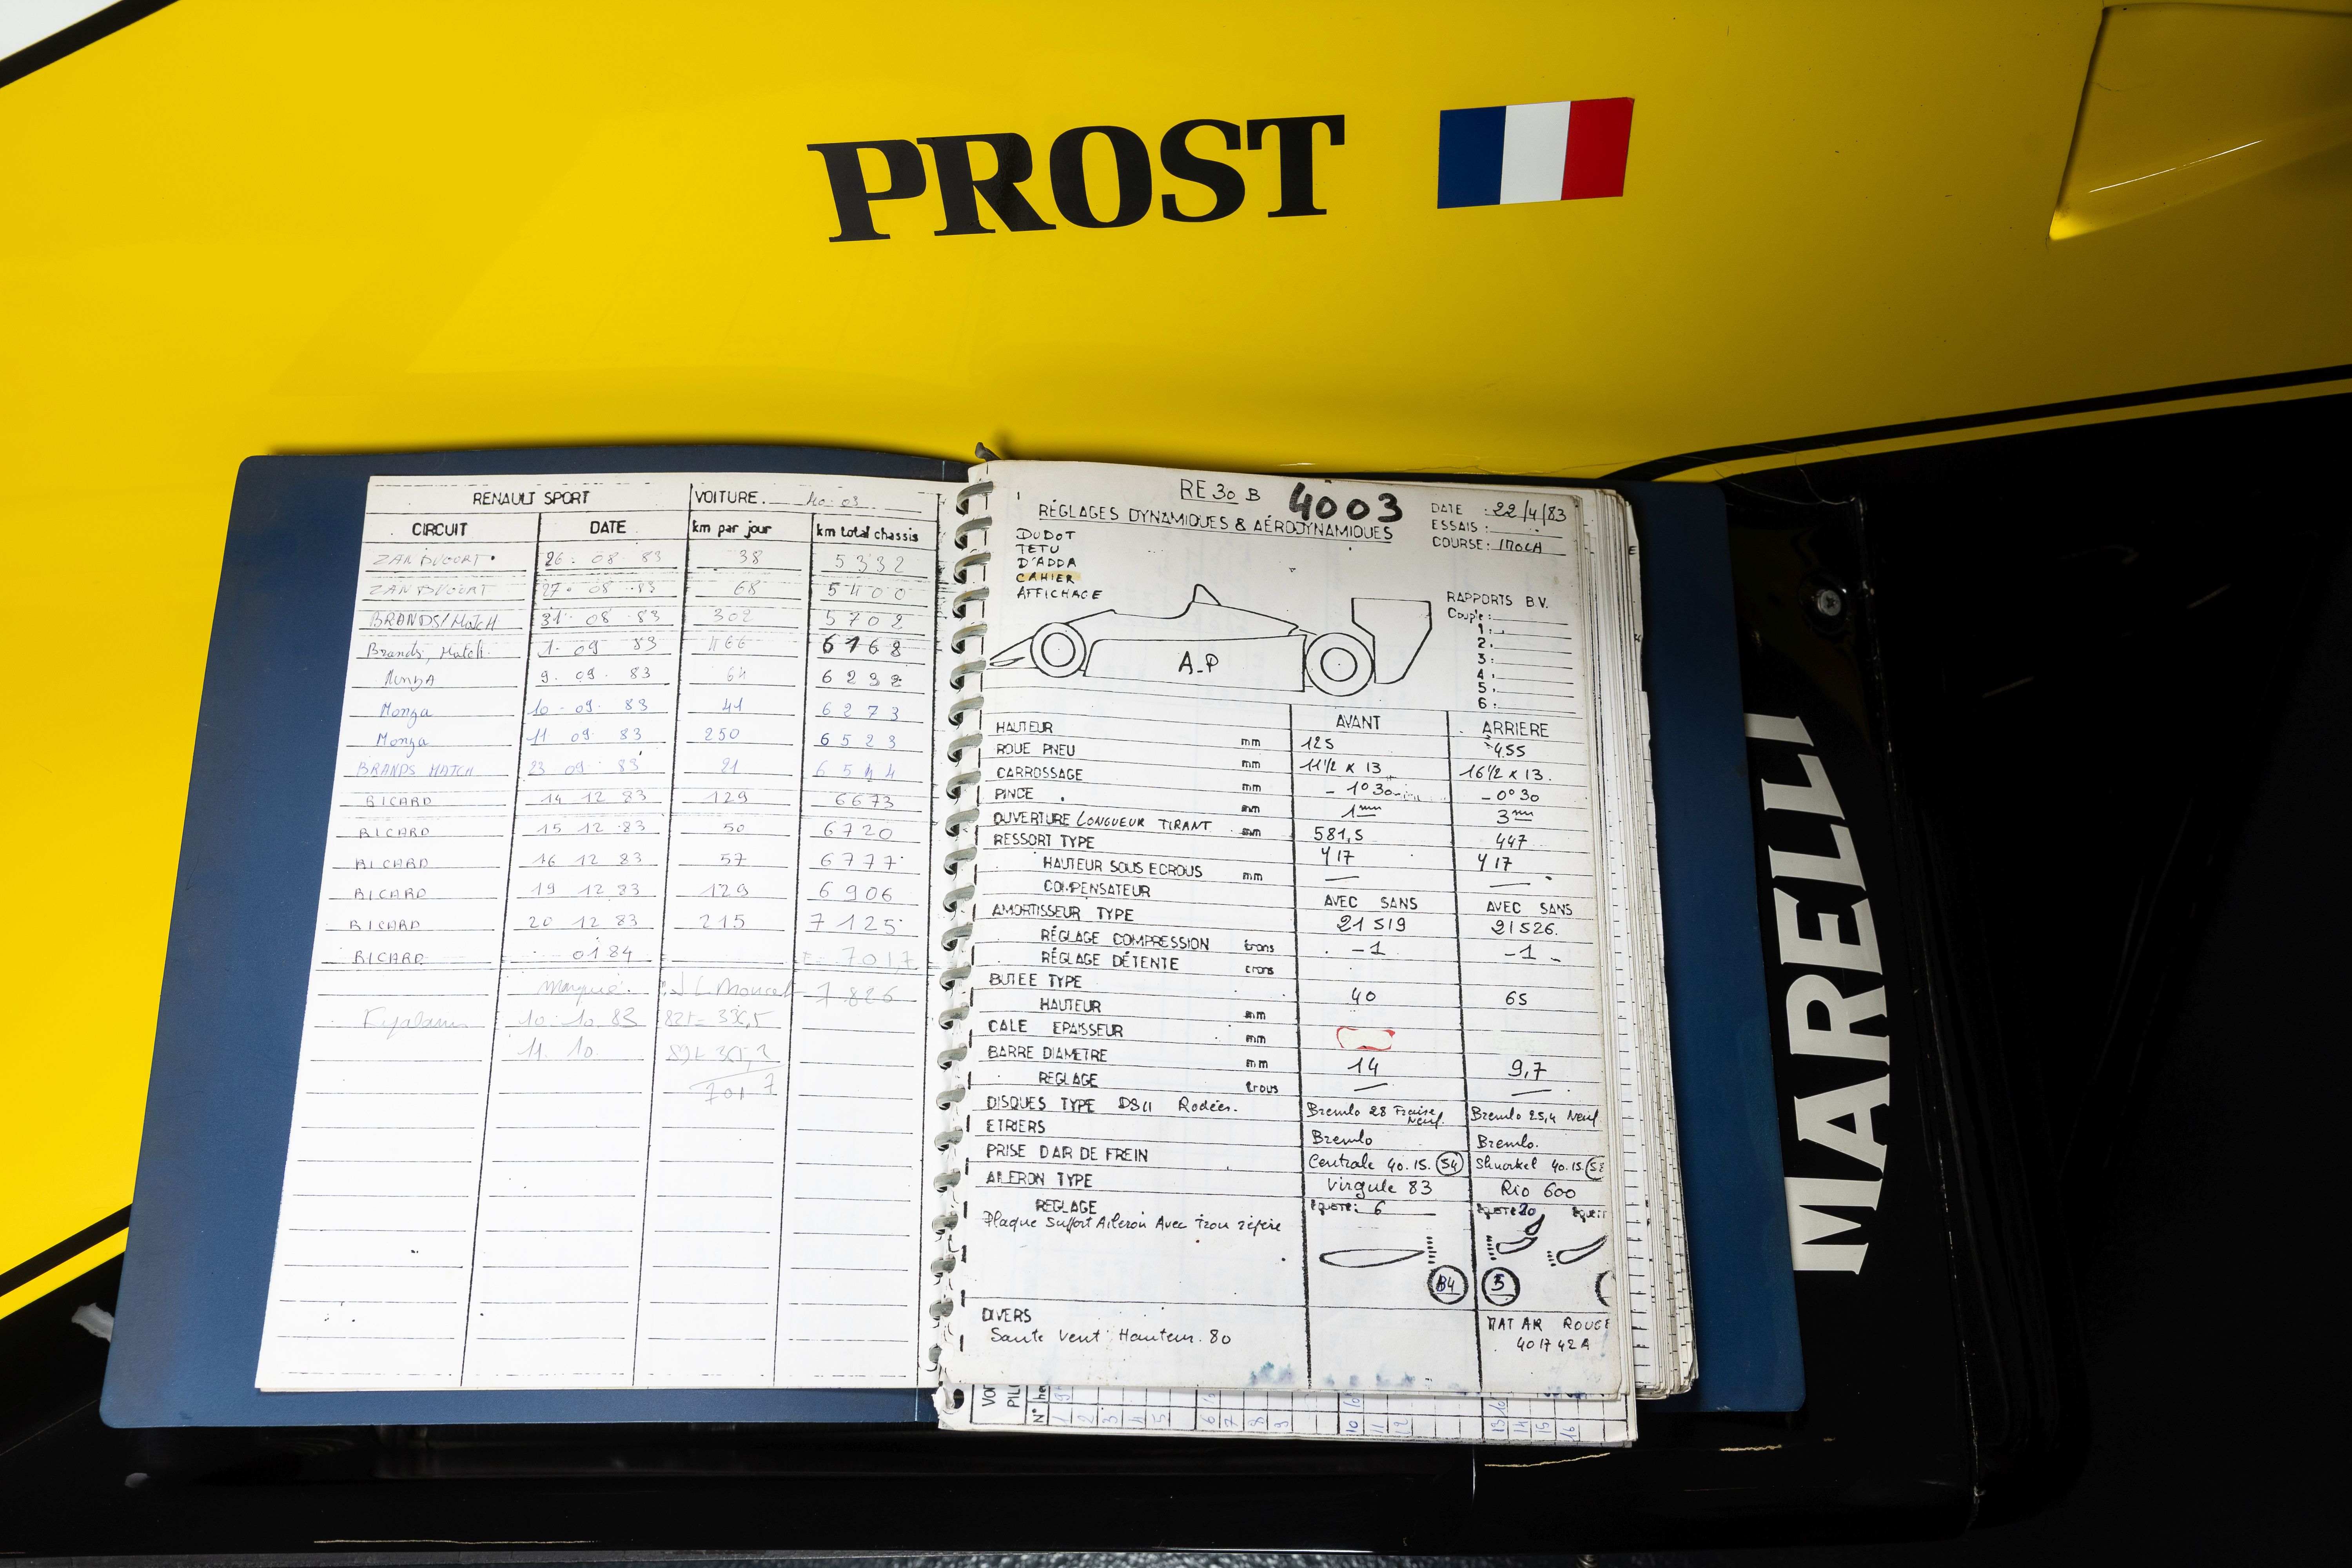 PROST
RENAULT SPORT VOITURE. 40.03
CIRCUIT DATE km par jour km total chassis
ZANDVOORT 26 08 83 38 5332
ZANDVOORT 27 08 83 68 5400
BRANDS/HATCH 31 08 83 302 5702
Brands, Hatch. 1. 09 83 466 6168
MonzA 9. 09. 83 64 6232
Monza 10 09. 83 41 6273
Monza 11 09. 83 250 6523
BRANDS HATCH 23 09 83 21 6544
RICARD 14 12 83 129 6673
RICARD 15 12 83 50 6720
RICARD 16 12 83 57 6777
RICARD 19 12 83 129 6906
RICARD 20 12 83 215 7125
RICARD 01 84 701,7
7.826
10 10 83
11. 10.
701 7
RE 30 B 4003
RÉGLAGES DYNAMIQUES & AÉRODYNAMIQUES
DATE : 22/4/83
ESSAIS :
COURSE : IMOLA
DUDOT
TETU
D'ADDA
CAHIER
AFFICHAGE
A-P
RAPPORTS B.V.
Couple :
1 :
2 :
3 :
4 :
5 :
6 :
AVANT ARRIERE
HAUTEUR mm 125 455
ROUE PNEU mm 11 1/2 x 13 16 1/2 x 13.
CARROSSAGE mm - 1° 30 - 0° 30
PINCE mm 1 mm 3 mm
OUVERTURE LONGUEUR TIRANT mm 581,5 447
RESSORT TYPE Y 17 Y 17
HAUTEUR SOUS ECROUS mm
COMPENSATEUR AVEC SANS AVEC SANS
AMORTISSEUR TYPE 21 519 21 526.
RÉGLAGE COMPRESSION crans -1 -1
RÉGLAGE DÉTENTE crans
BUTEE TYPE 40 65
HAUTEUR mm
CALE EPAISSEUR mm
BARRE DIAMETRE mm 14 9,7
REGLAGE trous
DISQUES TYPE DS11 Rodées. Brembo 28 Neuf. Brembo 25,4 Neuf
ETRIERS Brembo Brembo.
PRISE D AIR DE FREIN Centrale 40.15. 54 Shnorkel 40.15.
AILERON TYPE Virgule 83 Rio 600
REGLAGE 6 20
Plaque Support Aileron Avec trou repère
B4 5
DIVERS
Saute Vent Hauteur. 80
MAT AR ROUGE
40 17 42 A
N°
1
2
3
4
5
6
7
8
9
10
11
12
13
14
15
16
MARELLI